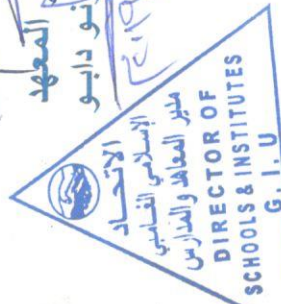 المعهد
الاتحاد
الإسلامي الغامبي
مدير المعاهد والمدارس
DIRECTOR OF
SCHOOLS & INSTITUTES
G. I. U